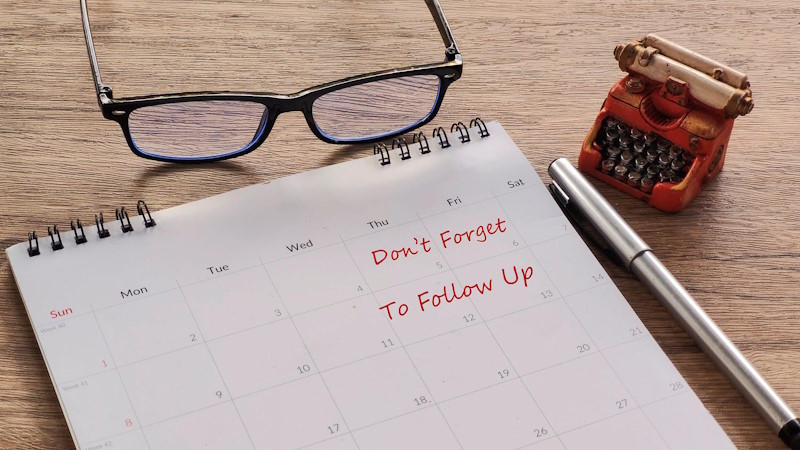 Sun Mon Tue Wed Thu Fri Sat
Don't Forget
To Follow Up
Week 40
1 2 3 4 5 6 7
Week 41
8 9 10 11 12 13 14
Week 42
17 18 19 20 21
26 27 28